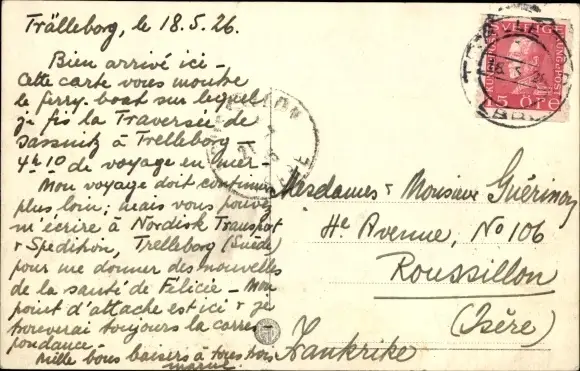 Trälleborg, le 18.5.26.
Bien arrivé ici –
Cette carte vous montre
le ferry-boat sur lequel
je fis la Traversée de
Sassnitz à Trelleborg –
4h10 de voyage en mer –
Mon voyage doit continuer
plus loin; mais vous pouvez
m'écrire à Nordisk Transport
& Spedition, Trelleborg (Suède)
pour me donner des nouvelles
de la santé de Félicie – Mon
point d'attache est ici & je
trouverai toujours la corres-
pondance –
Mille bons baisers à tous trois
SVERIGE
15 ÖRE
Mesdames & Monsieur
He Avenue, No 106
Roussillon
(Isère)
Frankrike